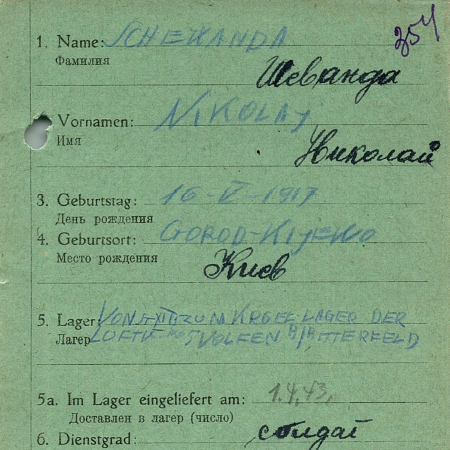 354
1. Name: SCHEWANDA
Фамилия
Шеванда
Vornamen: NIKOLAJ
Имя
Николай
3. Geburtstag: 16-V-1917
День рождения
4. Geburtsort: GOROD-KIJEWO
Место рождения
Киев
5. Lager: ZUM LAGER DER
Лагер WOLFEN B/BITTERFELD
5a. Im Lager eingeliefert am: 1.4.43.
Доставлен в лагер (число)
6. Dienstgrad: солдат